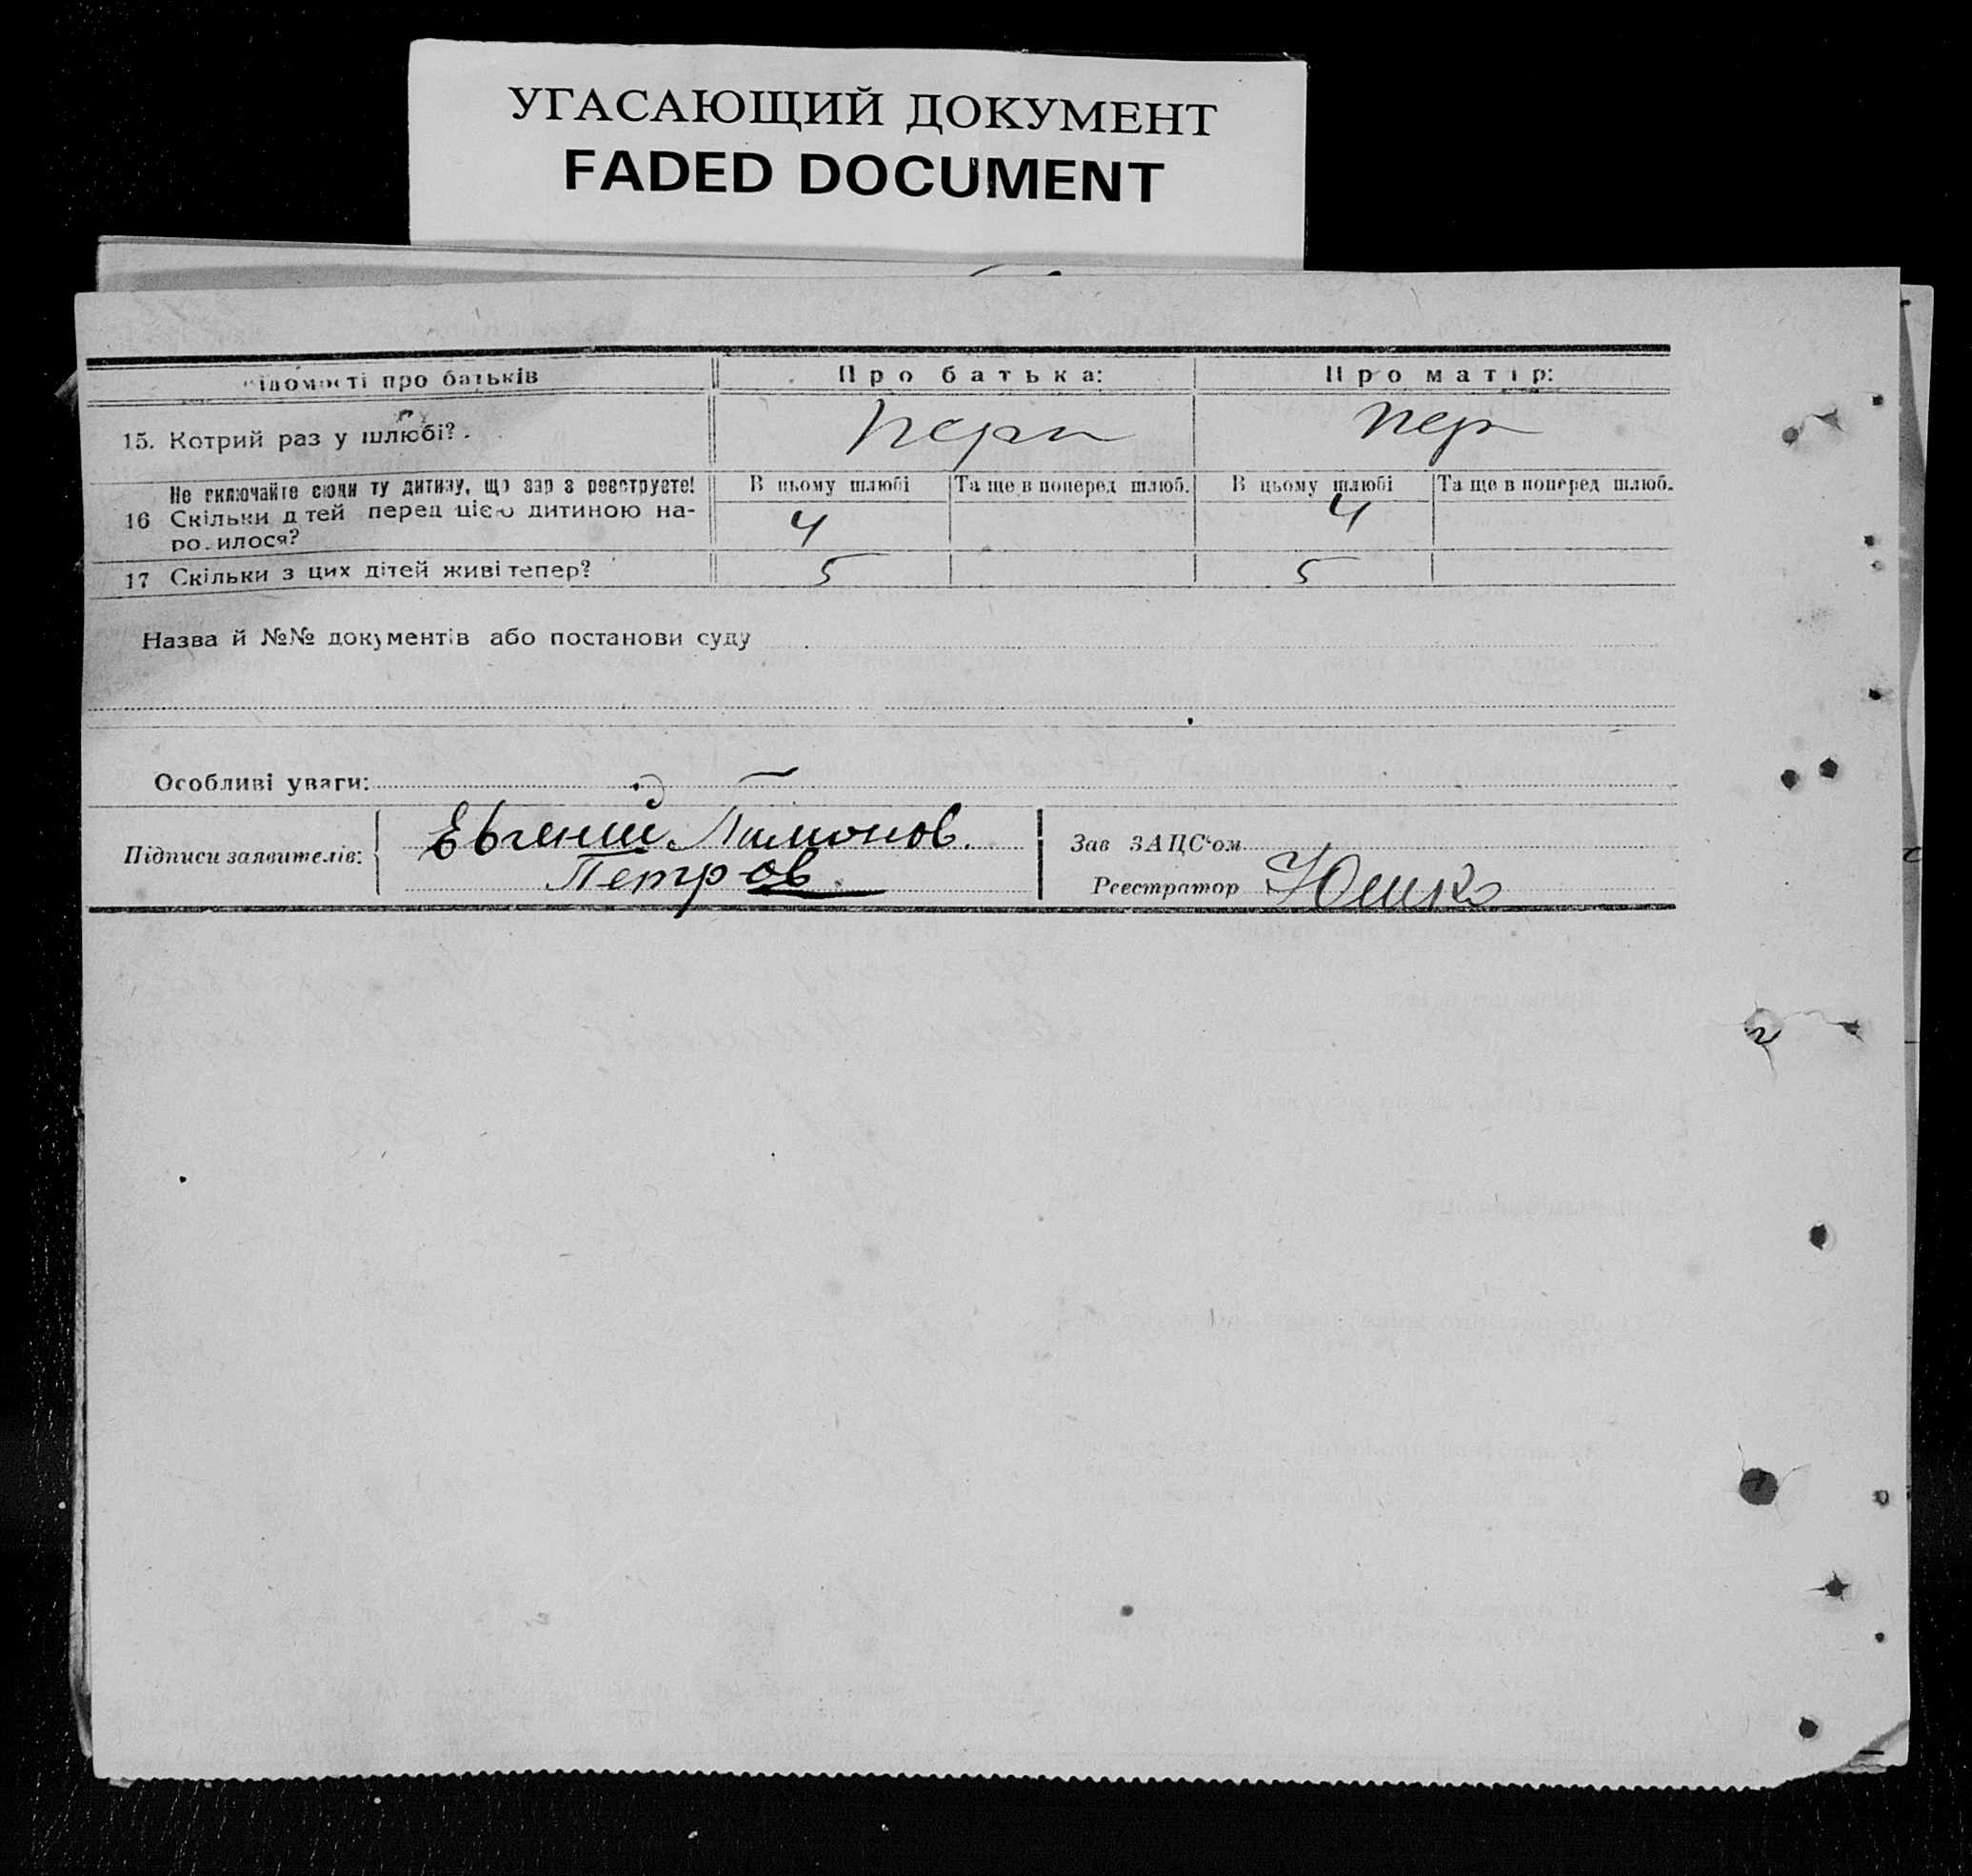 УГАСАЮЩИЙ ДОКУМЕНТ
FADED DOCUMENT
ідомості про батьків Про батька: Про матір:
15. Котрий раз у шлюбі? перв пер
Не включайте сюди ту дитину, що зараз реєструєте! В цьому шлюбі Та ще в поперед шлюб. В цьому шлюбі Та ще в поперед шлюб.
16 Скільки дітей перед цією дитиною на-
родилося? 4 4
17 Скільки з цих дітей живі тепер? 5 5
Назва й №№ документів або постанови суду
Особливі уваги:
Підписи заявителів: Евгений Лимонов. Зав ЗАЦС‘ом
Петров Реєстратор Юшко